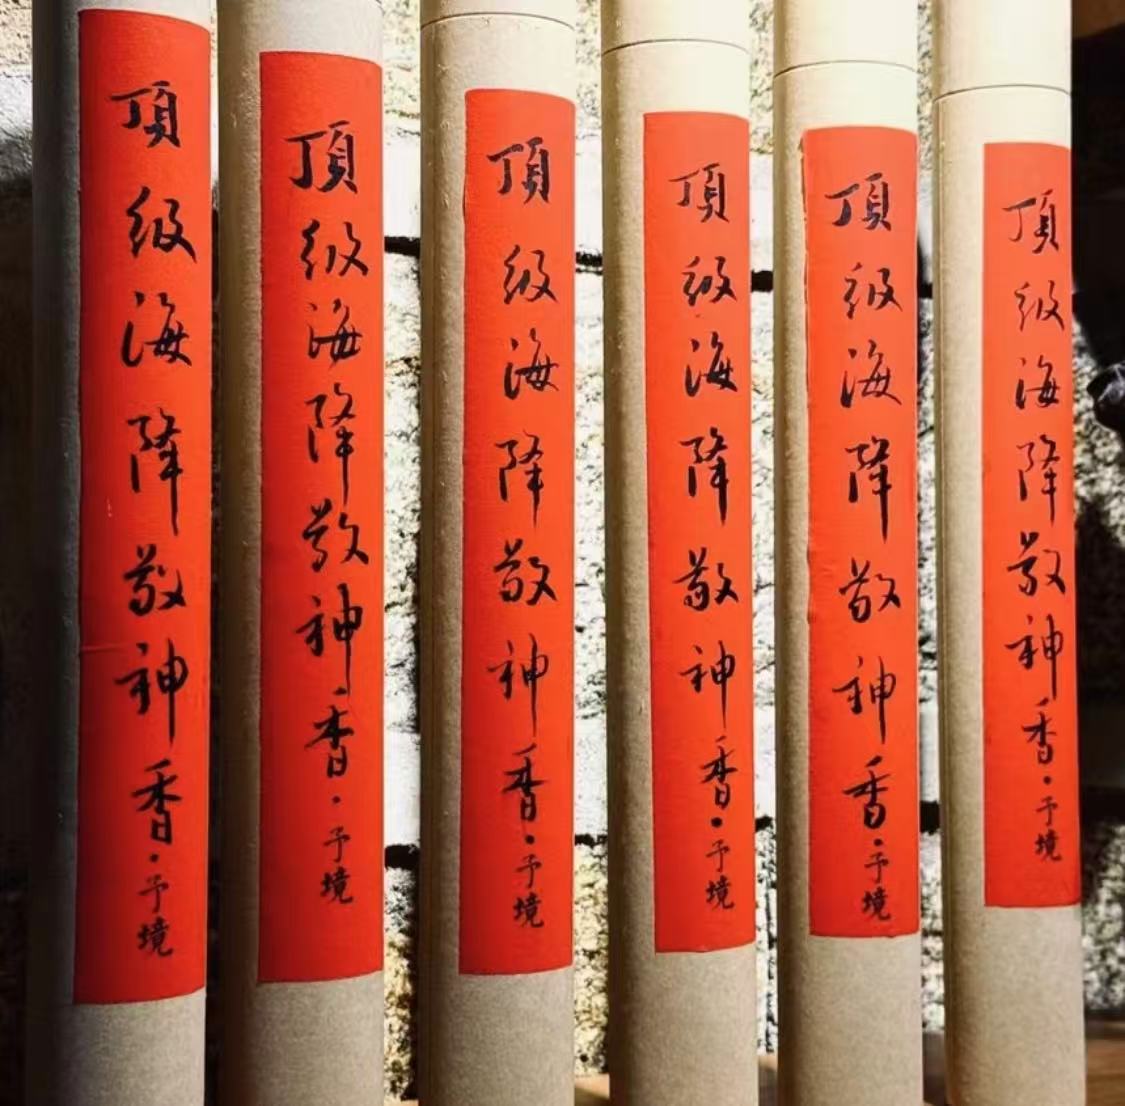 頂级海降敬神香·予境
頂级海降敬神香·予境
頂级海降敬神香·予境
頂级海降敬神香·予境
頂级海降敬神香·予境
頂级海降敬神香·予境